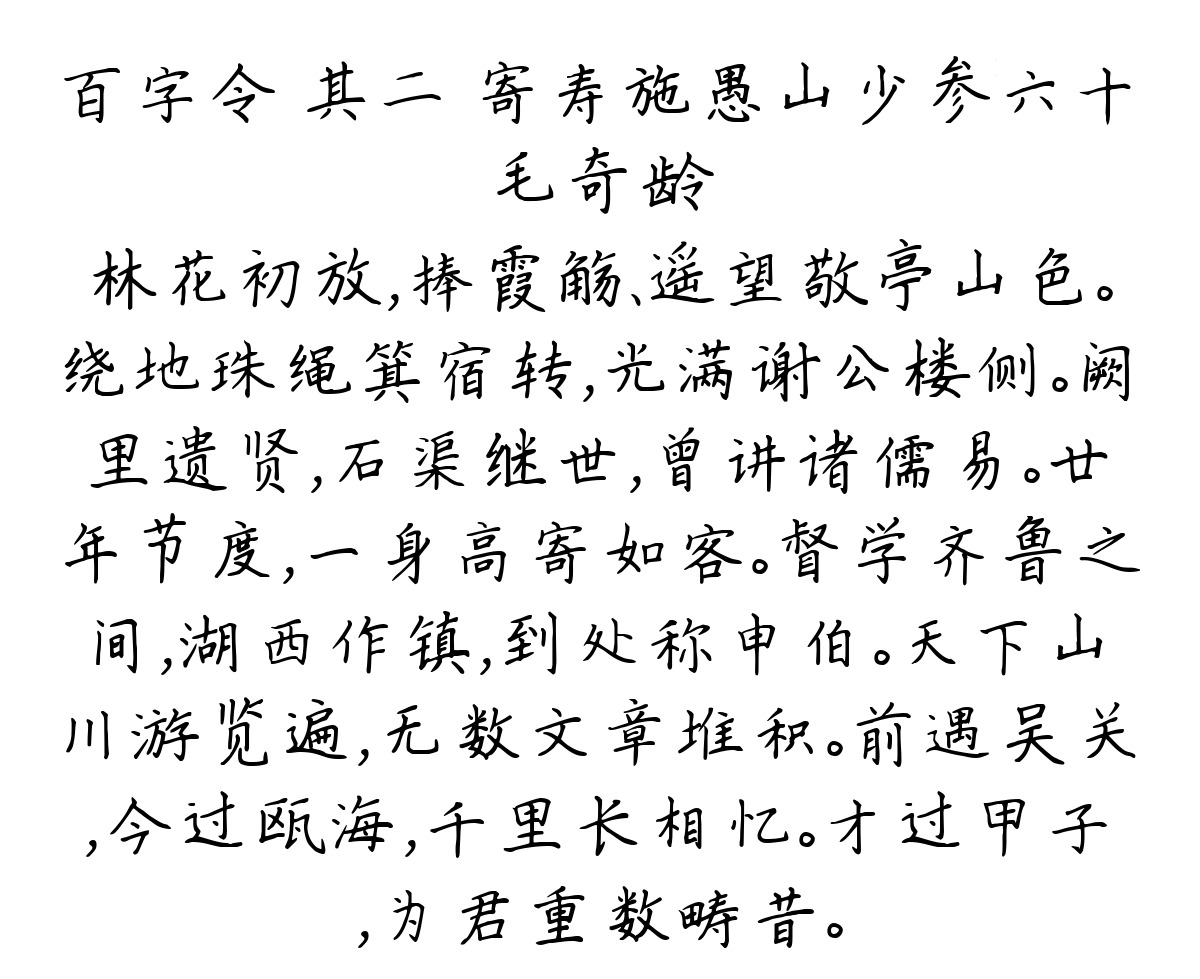 百字令 其二 寄寿施愚山少参六十
毛奇龄
林花初放,捧霞觞、遥望敬亭山色。
绕地珠绳箕宿转,光满谢公楼侧。阙
里遗贤,石渠继世,曾讲诸儒易。廿
年节度,一身高寄如客。督学齐鲁之
间,湖西作镇,到处称申伯。天下山
川游览遍,无数文章堆积。前遇吴关
,今过瓯海,千里长相忆。才过甲子
,为君重数畴昔。